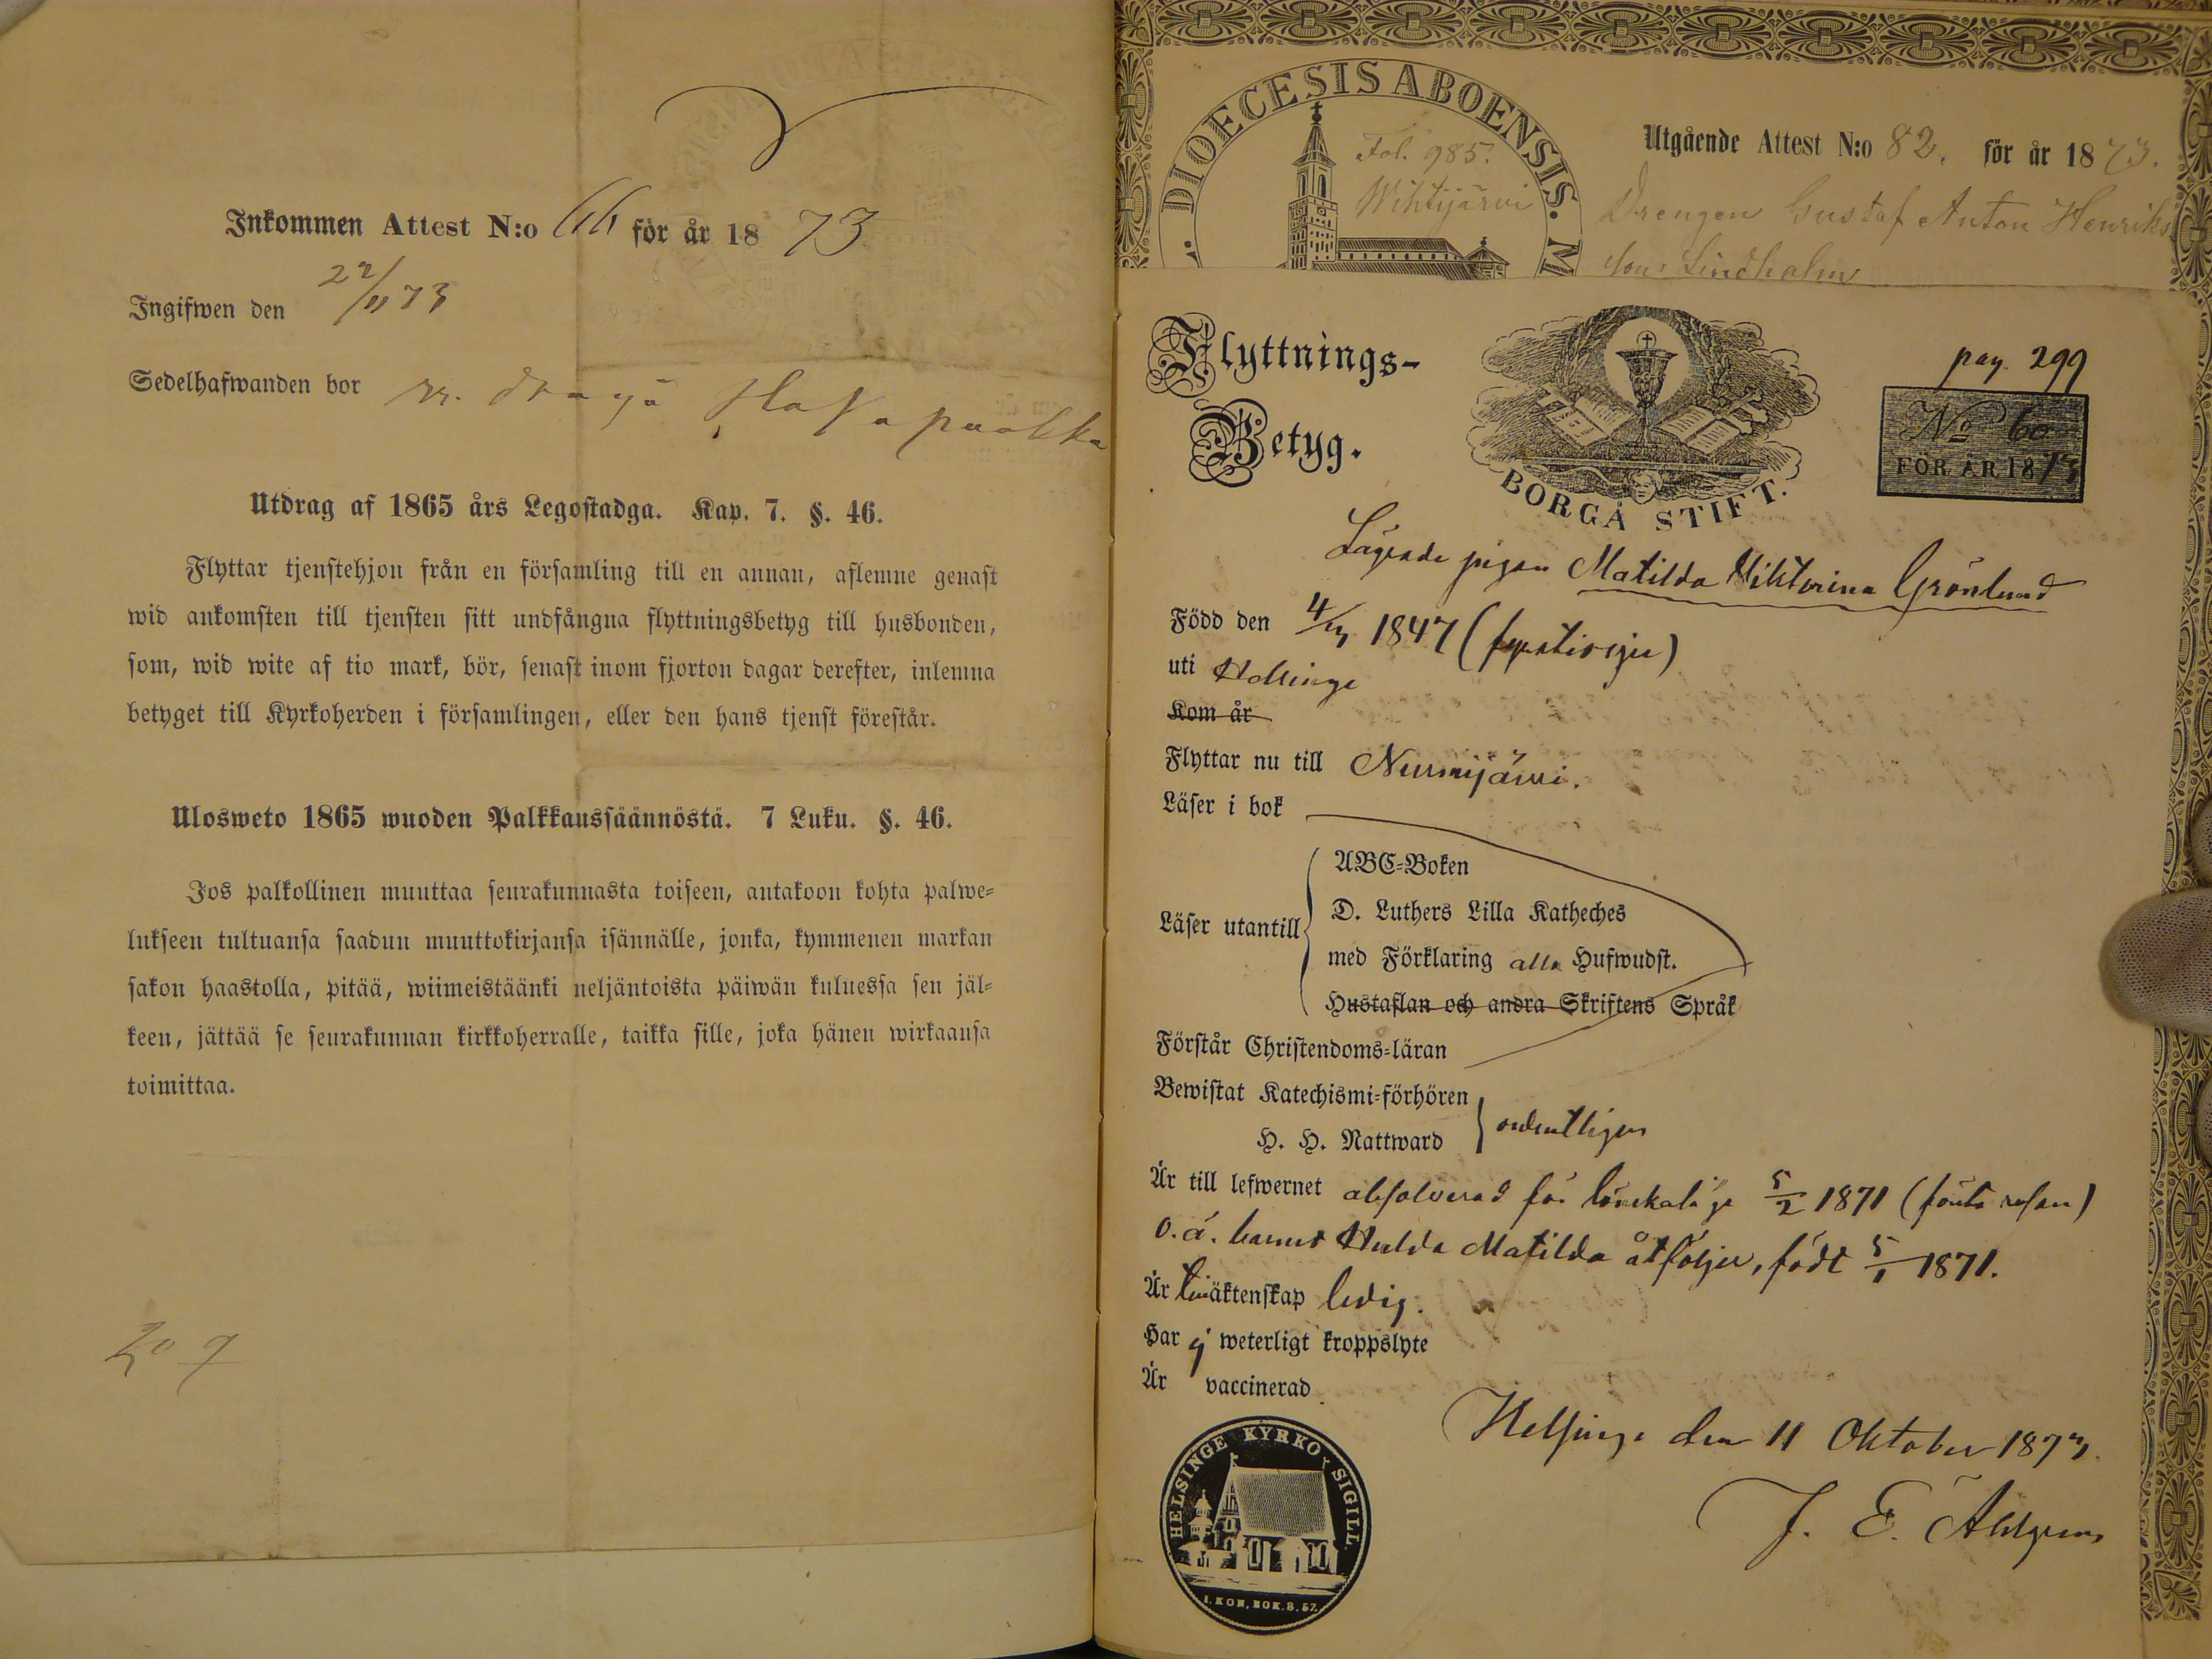 Inkommen Attest N:o 66 för år 1873
Ingifwen den 22/11 73
Sedelhafwanden bor
Utdrag af 1865 års Legostadga. Kap. 7. §. 46.
Flyttar tjenstehjon från en församling till en annan, aflemne genast
wid ankomsten till tjensten sitt undfångna flyttningsbetyg till husbonden,
som, wid wite af tio mark, bör, senast inom fjorton dagar derefter, inlemna
betyget till Kyrkoherden i församlingen, eller den hans tjenst förestår.
Ulosweto 1865 wuoden Palkkaussäännöstä. 7 Luku. §. 46.
Jos palkollinen muuttaa seurakunnasta toiseen, antakoon kohta palwe-
lukseen tultuansa saadun muuttokirjansa isännälle, jonka, kymmenen markan
sakon haastolla, pitää, wiimeistäänki neljäntoista päiwän kuluessa sen jäl-
keen, jättää se seurakunnan kirkkoherralle, taikka sille, joka hänen wirkaansa
toimittaa.
DIOECESIS ABOENSIS. M
Fol. 985.
Wihtijärvi
Utgående Attest N:o 82. för år 1873.
Drengen Gustaf Anton Henriks
son Lindholm
Flyttnings-
Betyg.
BORGÅ STIFT.
pag. 299
No 60
FÖR ÅR 1873
Lägende pigan Matilda Wiktorina Grönlund
Född den 4/12 1847 (fyratisju)
uti Helsinge
Kom år
Flyttar nu till Nurmijärvi.
Läser i bok
Läser utantill
ABC-Boken
D. Luthers Lilla Katheches
med Förklaring alla Hufwudst.
Hustaflan och andra Skriftens Språk
Förstår Christendoms-läran
Bewistat Katechismi-förhören
H. H. Nattward
ordentligen
Är till lefwernet absolverad för lönskaläge 5/2 1871 (första resan)
o. ä. barnet Hulda Matilda åtföljer, födt 5/1 1871.
Är till äktenskap ledig.
Har ej weterligt kroppslyte
Är vaccinerad
Helsinge den 11 Oktober 1873.
J. E. Ahlgren
HELSINGE KYRKO SIGILL.
1. KON. BOK. 8. 57.